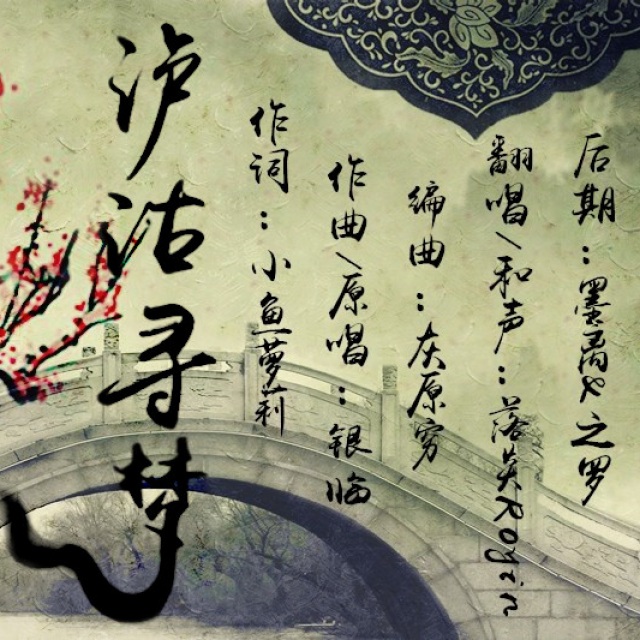 泸沽寻梦
作词：小鱼萝莉
作曲\原唱：银临
编曲：灰原穷
翻唱\和声：落失Rogin
后期：墨